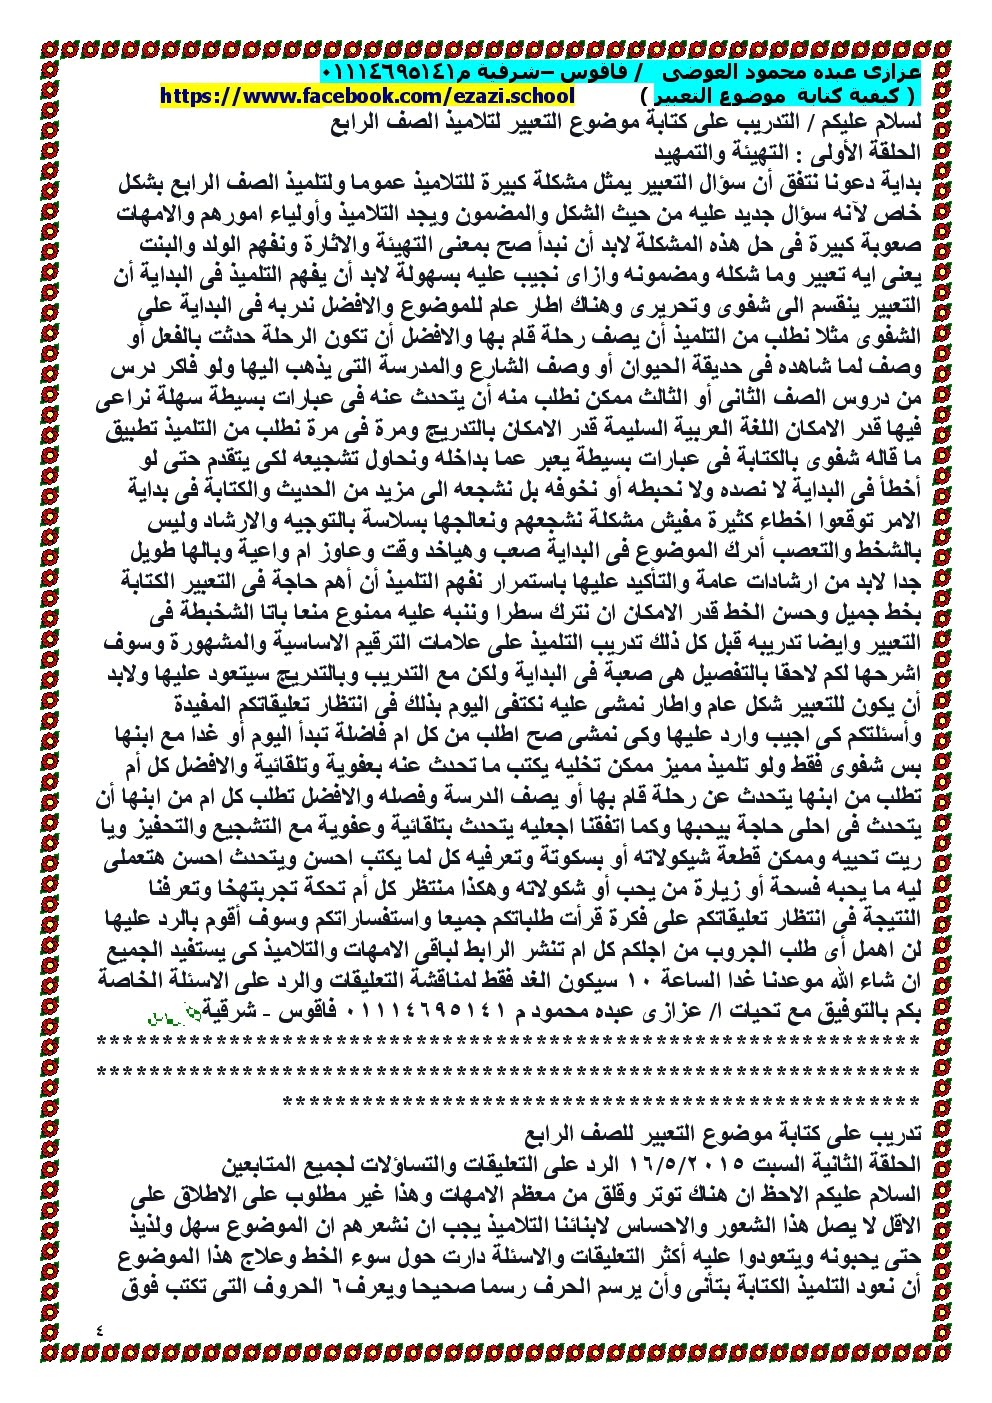 عزازى عبده محمود العوضى / فاقوس –شرقية م٠١١١٤٦٩٥١٤١
( كيفية كتابة موضوع التعبير ) https://www.facebook.com/ezazi.school
لسلام عليكم / التدريب على كتابة موضوع التعبير لتلاميذ الصف الرابع
الحلقة الأولى : التهيئة والتمهيد
بداية دعونا نتفق أن سؤال التعبير يمثل مشكلة كبيرة للتلاميذ عموما ولتلميذ الصف الرابع بشكل
خاص لآنه سؤال جديد عليه من حيث الشكل والمضمون ويجد التلاميذ وأولياء امورهم والامهات
صعوبة كبيرة فى حل هذه المشكلة لابد أن نبدأ صح بمعنى التهيئة والاثارة ونفهم الولد والبنت
يعنى ايه تعبير وما شكله ومضمونه وازاى نجيب عليه بسهولة لابد أن يفهم التلميذ فى البداية أن
التعبير ينقسم الى شفوى وتحريرى وهناك اطار عام للموضوع والافضل ندربه فى البداية على
الشفوى مثلا نطلب من التلميذ أن يصف رحلة قام بها والافضل أن تكون الرحلة حدثت بالفعل أو
وصف لما شاهده فى حديقة الحيوان أو وصف الشارع والمدرسة التى يذهب اليها ولو فاكر درس
من دروس الصف الثانى أو الثالث ممكن نطلب منه أن يتحدث عنه فى عبارات بسيطة سهلة نراعى
فيها قدر الامكان اللغة العربية السليمة قدر الامكان بالتدريج ومرة فى مرة نطلب من التلميذ تطبيق
ما قاله شفوى بالكتابة فى عبارات بسيطة يعبر عما بداخله ونحاول تشجيعه لكى يتقدم حتى لو
أخطأ فى البداية لا نصده ولا نحبطه أو نخوفه بل نشجعه الى مزيد من الحديث والكتابة فى بداية
الامر توقعوا اخطاء كثيرة مفيش مشكلة نشجعهم ونعالجها بسلاسة بالتوجيه والارشاد وليس
بالشخط والتعصب أدرك الموضوع فى البداية صعب وهياخد وقت وعاوز ام واعية وبالها طويل
جدا لابد من ارشادات عامة والتأكيد عليها باستمرار نفهم التلميذ أن أهم حاجة فى التعبير الكتابة
بخط جميل وحسن الخط قدر الامكان ان نترك سطرا وننبه عليه ممنوع منعا باتا الشخبطة فى
التعبير وايضا تدريبه قبل كل ذلك تدريب التلميذ على علامات الترقيم الاساسية والمشهورة وسوف
اشرحها لكم لاحقا بالتفصيل هى صعبة فى البداية ولكن مع التدريب وبالتدريج سيتعود عليها ولابد
أن يكون للتعبير شكل عام واطار نمشى عليه نكتفى اليوم بذلك فى انتظار تعليقاتكم المفيدة
وأسئلتكم كى اجيب وارد عليها وكى نمشى صح اطلب من كل ام فاضلة تبدأ اليوم أو غدا مع ابنها
بس شفوى فقط ولو تلميذ مميز ممكن تخليه يكتب ما تحدث عنه بعفوية وتلقائية والافضل كل أم
تطلب من ابنها يتحدث عن رحلة قام بها أو يصف الدرسة وفصله والافضل تطلب كل ام من ابنها أن
يتحدث فى احلى حاجة بيحبها وكما اتفقنا اجعليه يتحدث بتلقائية وعفوية مع التشجيع والتحفيز ويا
ريت تحييه وممكن قطعة شيكولاته أو بسكوتة وتعرفيه كل لما يكتب احسن ويتحدث احسن هتعملى
ليه ما يحبه فسحة أو زيارة من يحب أو شكولاته وهكذا منتظر كل أم تحكة تجربتهخا وتعرفنا
النتيجة فى انتظار تعليقاتكم على فكرة قرأت طلباتكم جميعا واستفساراتكم وسوف أقوم بالرد عليها
لن اهمل أى طلب الجروب من اجلكم كل ام تنشر الرابط لباقى الامهات والتلاميذ كى يستفيد الجميع
ان شاء الله موعدنا غدا الساعة ١٠ سيكون الغد فقط لمناقشة التعليقات والرد على الاسئلة الخاصة
بكم بالتوفيق مع تحيات ا/ عزازى عبده محمود م ٠١١١٤٦٩٥١٤١ فاقوس - شرقية
**************************************************************
**************************************************************
************************************************
تدريب على كتابة موضوع التعبير للصف الرابع
الحلقة الثانية السبت ١٦/٥/٢٠١٥ الرد على التعليقات والتساؤلات لجميع المتابعين
السلام عليكم الاحظ ان هناك توتر وقلق من معظم الامهات وهذا غير مطلوب على الاطلاق على
الاقل لا يصل هذا الشعور والاحساس لابنائنا التلاميذ يجب ان نشعرهم ان الموضوع سهل ولذيذ
حتى يحبونه ويتعودوا عليه أكثر التعليقات والاسئلة دارت حول سوء الخط وعلاج هذا الموضوع
أن نعود التلميذ الكتابة بتأنى وأن يرسم الحرف رسما صحيحا ويعرف٦ الحروف التى تكتب فوق
٤